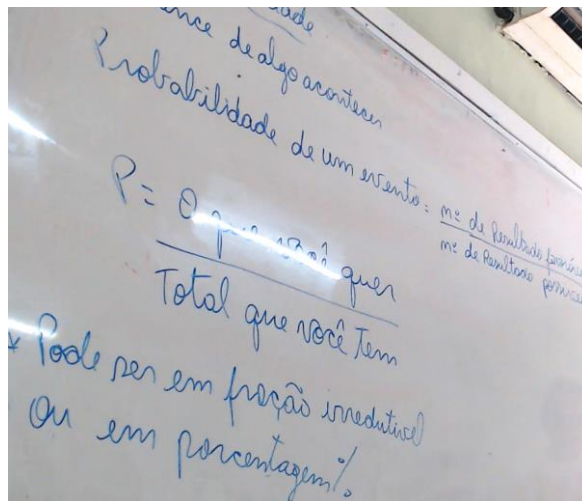 de algo acontecer
Probabilidade de um evento: nº de Resultado
nº de Resultado
P = O que você quer
Total que você Tem
* Pode ser em fração irredutível
Ou em porcentagem %